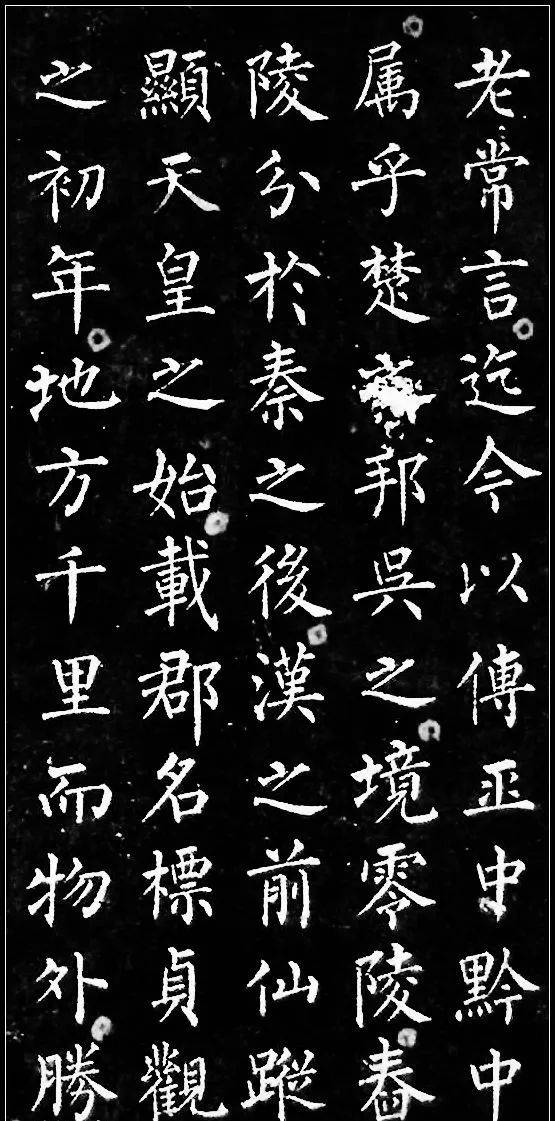 老常言迄今以傳亚中黔中
属乎楚之邦吳之境零陵春
陵分於秦之後漢之前仙蹤
顯天皇之始載郡名標貞觀
之初年地方千里而物外勝